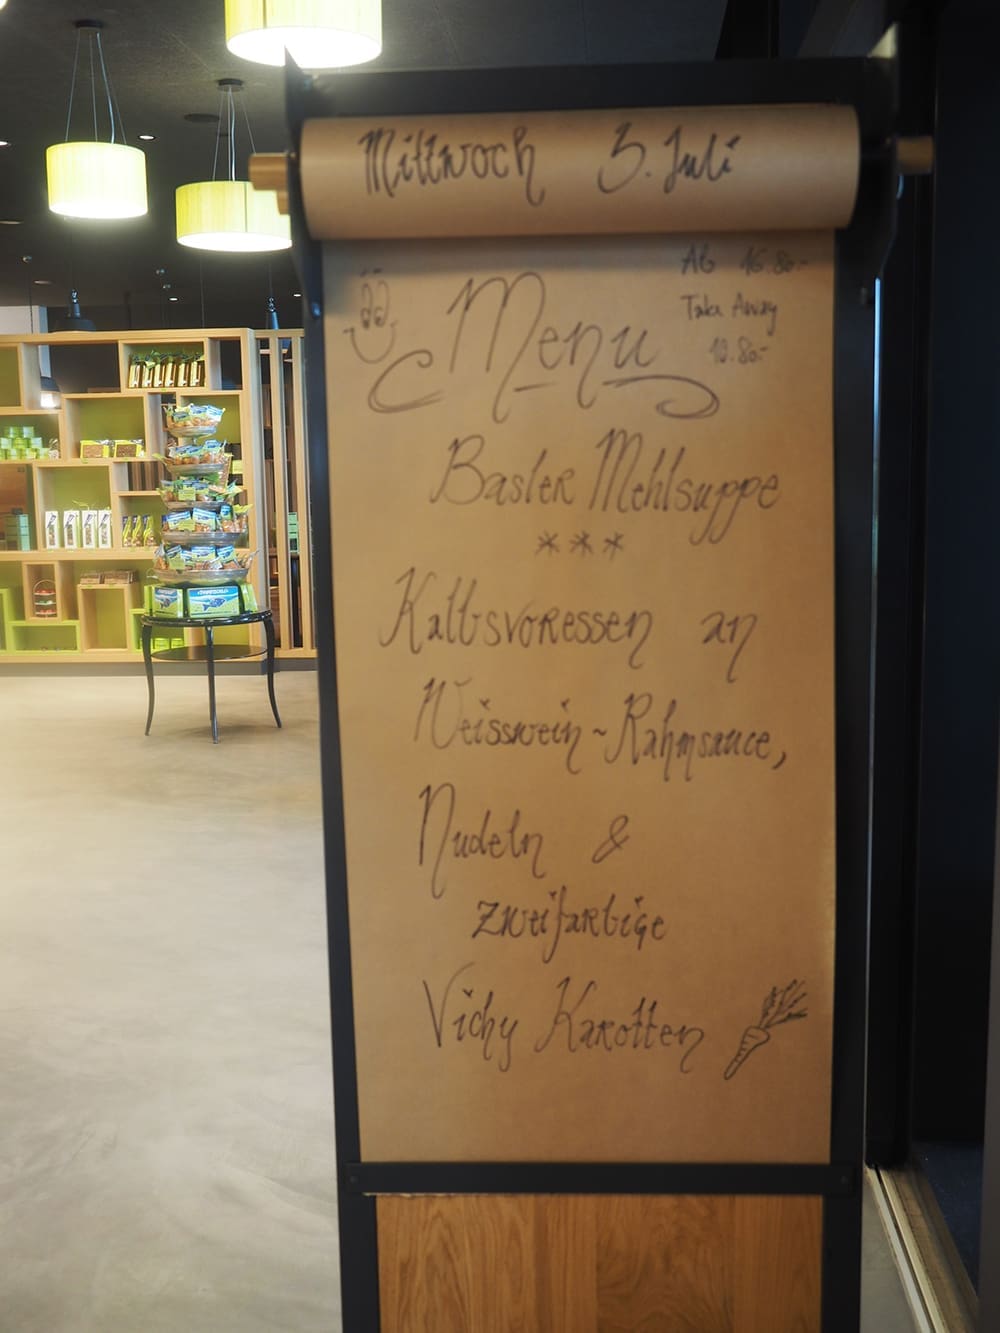 Mittwoch 3. Juli
Ab 16.80.-
Take Away
10.80.-
Menu
Basler Mehlsuppe
***
Kalbsvoressen an
Weisswein-Rahmsauce,
Nudeln &
zweifarbige
Vichy Karotten